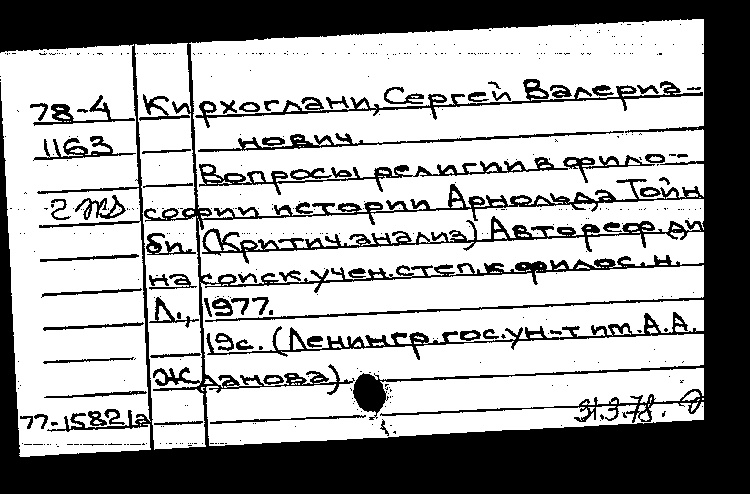 78-4 Кирхоглани, Сергей Валериа-
1163 нович.
Вопросы религии в фило-
2 экз софии истории Арнольда Тойн
би. (Критич. анализ) Автореф. ди
на соиск. учен. степ. к. филос. н.
Л., 1977.
19с. (Ленингр. гос. ун-т им. А.А.
Жданова).
77-15821а 31.3.78.